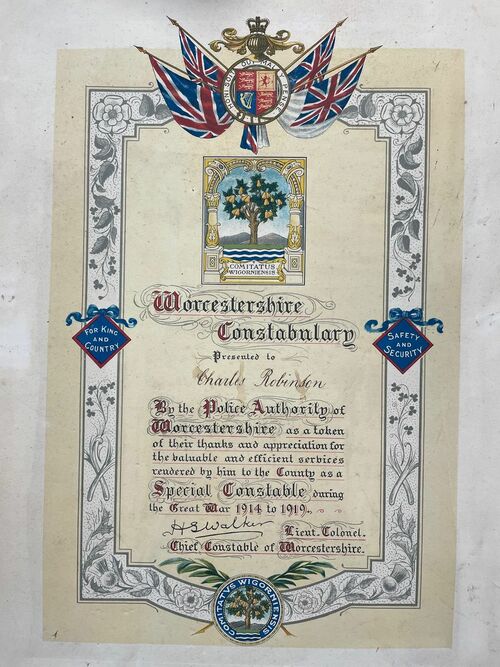 HONI SOIT QUI MAL Y PENSE
COMITATUS
WIGORNIENSIS
Worcestershire
Constabulary
Presented to
Charles Robinson
FOR KING
AND
COUNTRY
SAFETY
AND
SECURITY
By the Police Authority of
Worcestershire as a token
of their thanks and appreciation for
the valuable and efficient services
rendered by him to the County as a
Special Constable during
the Great War 1914 to 1919.
H S Walker
Lieut. Colonel.
Chief Constable of Worcestershire.
COMITATVS WIGORNIENSIS